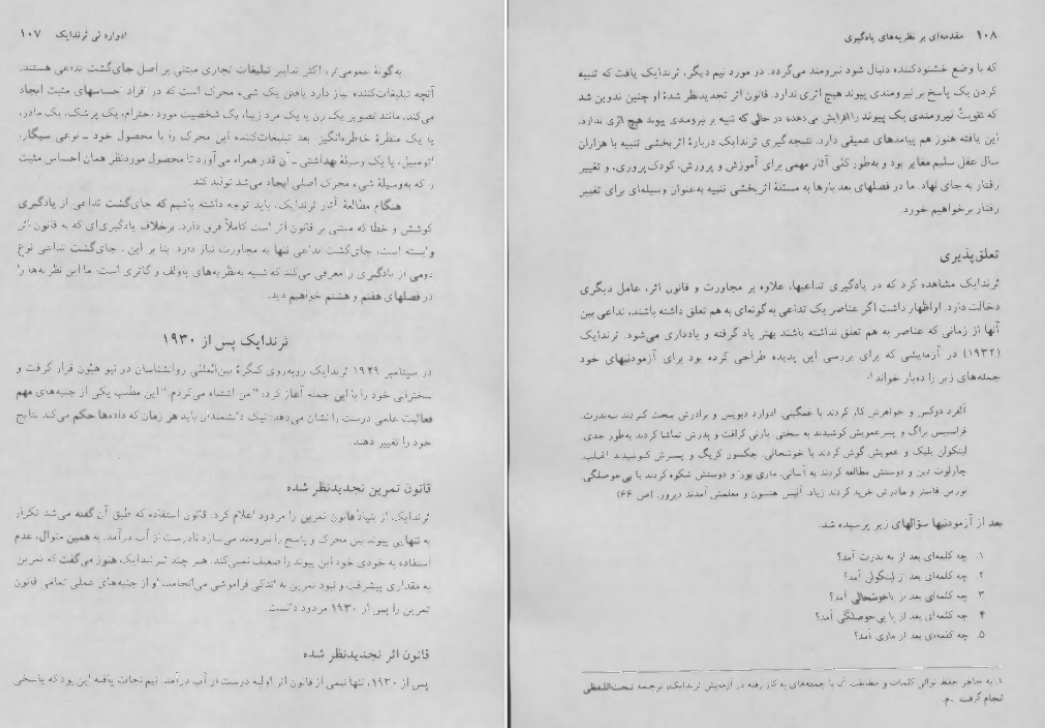 ادوارد لی ثرندایک ۱۰۷
به‌گونهٔ عمومی‌تر، اکثر تدابیر تبلیغات تجاری مبتنی بر اصل جای‌گشت تداعی هستند.
آنچه تبلیغات‌کننده نیاز دارد یافتن یک شیء محرک است که در افراد احساسهای مثبت ایجاد
می‌کند، مانند تصویر یک زن یا یک مرد زیبا، یک شخصیت مورد احترام، یک پزشک، یک مادر،
یا یک منظرهٔ خاطره‌انگیز. بعد تبلیغات‌کننده این محرک را با محصول خود ـ نوعی سیگار،
اتومبیل، یا یک وسیلهٔ بهداشتی ـ آن قدر همراه می‌آورد تا محصول موردنظر همان احساس مثبت
را که به‌وسیلهٔ شیء محرک اصلی ایجاد می‌شد تولید کند.
هنگام مطالعهٔ آثار ثرندایک، باید توجه داشته باشیم که جای‌گشت تداعی از یادگیری
کوشش و خطا که مبتنی بر قانون اثر است کاملاً فرق دارد. برخلاف یادگیری‌ای که به قانون اثر
وابسته است، جای‌گشت تداعی تنها به مجاورت نیاز دارد. بنا بر این، جای‌گشت تداعی نوع
دومی از یادگیری را معرفی می‌کند که شبیه به‌نظریه‌های پاولف و گاثری است. ما این نظریه‌ها را
در فصلهای هفتم و هشتم خواهیم دید.
ثرندایک پس از ۱۹۳۰
در سپتامبر ۱۹۲۹ ثرندایک روبه‌روی کنگرهٔ بین‌المللی روانشناسان در نیو هیون قرار گرفت و
سخنرانی خود را با این جمله آغاز کرد: "من اشتباه می‌کردم." این مطلب یکی از جنبه‌های مهم
فعالیت علمی درست را نشان می‌دهد: نیک دانشمندان باید هر زمان که داده‌ها حکم می‌کند نتایج
خود را تغییر دهند.
قانون تمرین تجدیدنظر شده
ثرندایک، از بنیاد قانون تمرین را مردود اعلام کرد. قانون استفاده که طبق آن گفته می‌شد تکرار
به تنهایی پیوند بین محرک و پاسخ را نیرومند می‌سازد نادرست از آب درآمد. به همین منوال، عدم
استفاده به خودی خود این پیوند را ضعیف نمی‌کند. هر چند ثرندایک، هنوز می‌گفت که تمرین
به مقداری پیشرفت و نبود تمرین به اندکی فراموشی می‌انجامد، او از جنبه‌های عملی تمامی قانون
تمرین را پس از ۱۹۳۰ مردود دانست.
قانون اثر تجدیدنظر شده
پس از ۱۹۳۰، تنها نیمی از قانون اثر اولیه درست از آب درآمد. نیم نجات یافته این بود که پاسخی
۱۰۸ مقدمه‌ای بر نظریه‌های یادگیری
که با وضع خشنودکننده دنبال شود نیرومند می‌گردد. در مورد نیم دیگر، ثرندایک یافت که تنبیه
کردن یک پاسخ بر نیرومندی پیوند هیچ اثری ندارد. قانون اثر تجدیدنظر شدهٔ او چنین تدوین شد
که تقویت نیرومندی یک پیوند را افزایش می‌دهد در حالی که تنبیه بر نیرومندی پیوند هیچ اثری ندارد.
این یافته هنوز هم پیامدهای عمیقی دارد. نتیجه گیری ثرندایک دربارهٔ اثربخشی تنبیه با هزاران
سال عقل سلیم مغایر بود و به‌طور کلی آثار مهمی برای آموزش و پرورش، کودک‌پروری، و تغییر
رفتار به جای نهاد. ما در فصلهای بعد بارها به مسئلهٔ اثربخشی تنبیه به‌عنوان وسیله‌ای برای تغییر
رفتار برخواهیم خورد.
تعلق‌پذیری
ثرندایک مشاهده کرد که در یادگیری تداعیها، علاوه بر مجاورت و قانون اثر، عامل دیگری
دخالت دارد. او اظهار داشت اگر عناصر یک تداعی به گونه‌ای به هم تعلق داشته باشند، تداعی بین
آنها از زمانی که عناصر به هم تعلق نداشته باشند بهتر یاد گرفته و یادداری می‌شود. ثرندایک
(۱۹۳۲) در آزمایشی که برای بررسی این پدیده طراحی کرده بود برای آزمودنیهای خود
جمله‌های زیر را ده‌بار خواند۱.
آلفرد دوکس و خواهرش کار کردند با غمگینی. ادوارد دیویس و برادرش بحث کردند به‌ندرت.
فرانسیس براگ و پسرعمویش کوشیدند به سختی. بارنی کرافت و پدرش تماشا کردند به‌طور جدی.
لینکولن بلیک و عمویش گوش کردند با خوشحالی. جکسون کریگ و پسرش کوشیدند اغلب.
چارلوت دین و دوستش مطالعه کردند به آسانی. ماری بورز و دوستش شکوه کردند با بی‌حوصلگی.
نورمن فاستر و مادرش خرید کردند زیاد. آلیس هنسون و معلمش آمدند دیروز. (ص ۶۶)
بعد از آزمودنیها سؤالهای زیر پرسیده شد.
۱. چه کلمه‌ای بعد از به ندرت آمد؟
۲. چه کلمه‌ای بعد از لینکولن آمد؟
۳. چه کلمه‌ای بعد از با خوشحالی آمد؟
۴. چه کلمه‌ای بعد از با بی‌حوصلگی آمد؟
۵. چه کلمه‌ای بعد از ماری آمد؟
۱. به خاطر حفظ توالی کلمات و مطابقت آن با جمله‌های به کار رفته در آزمایش ثرندایک، ترجمه تحت‌اللفظی
انجام گرفت. ـم.